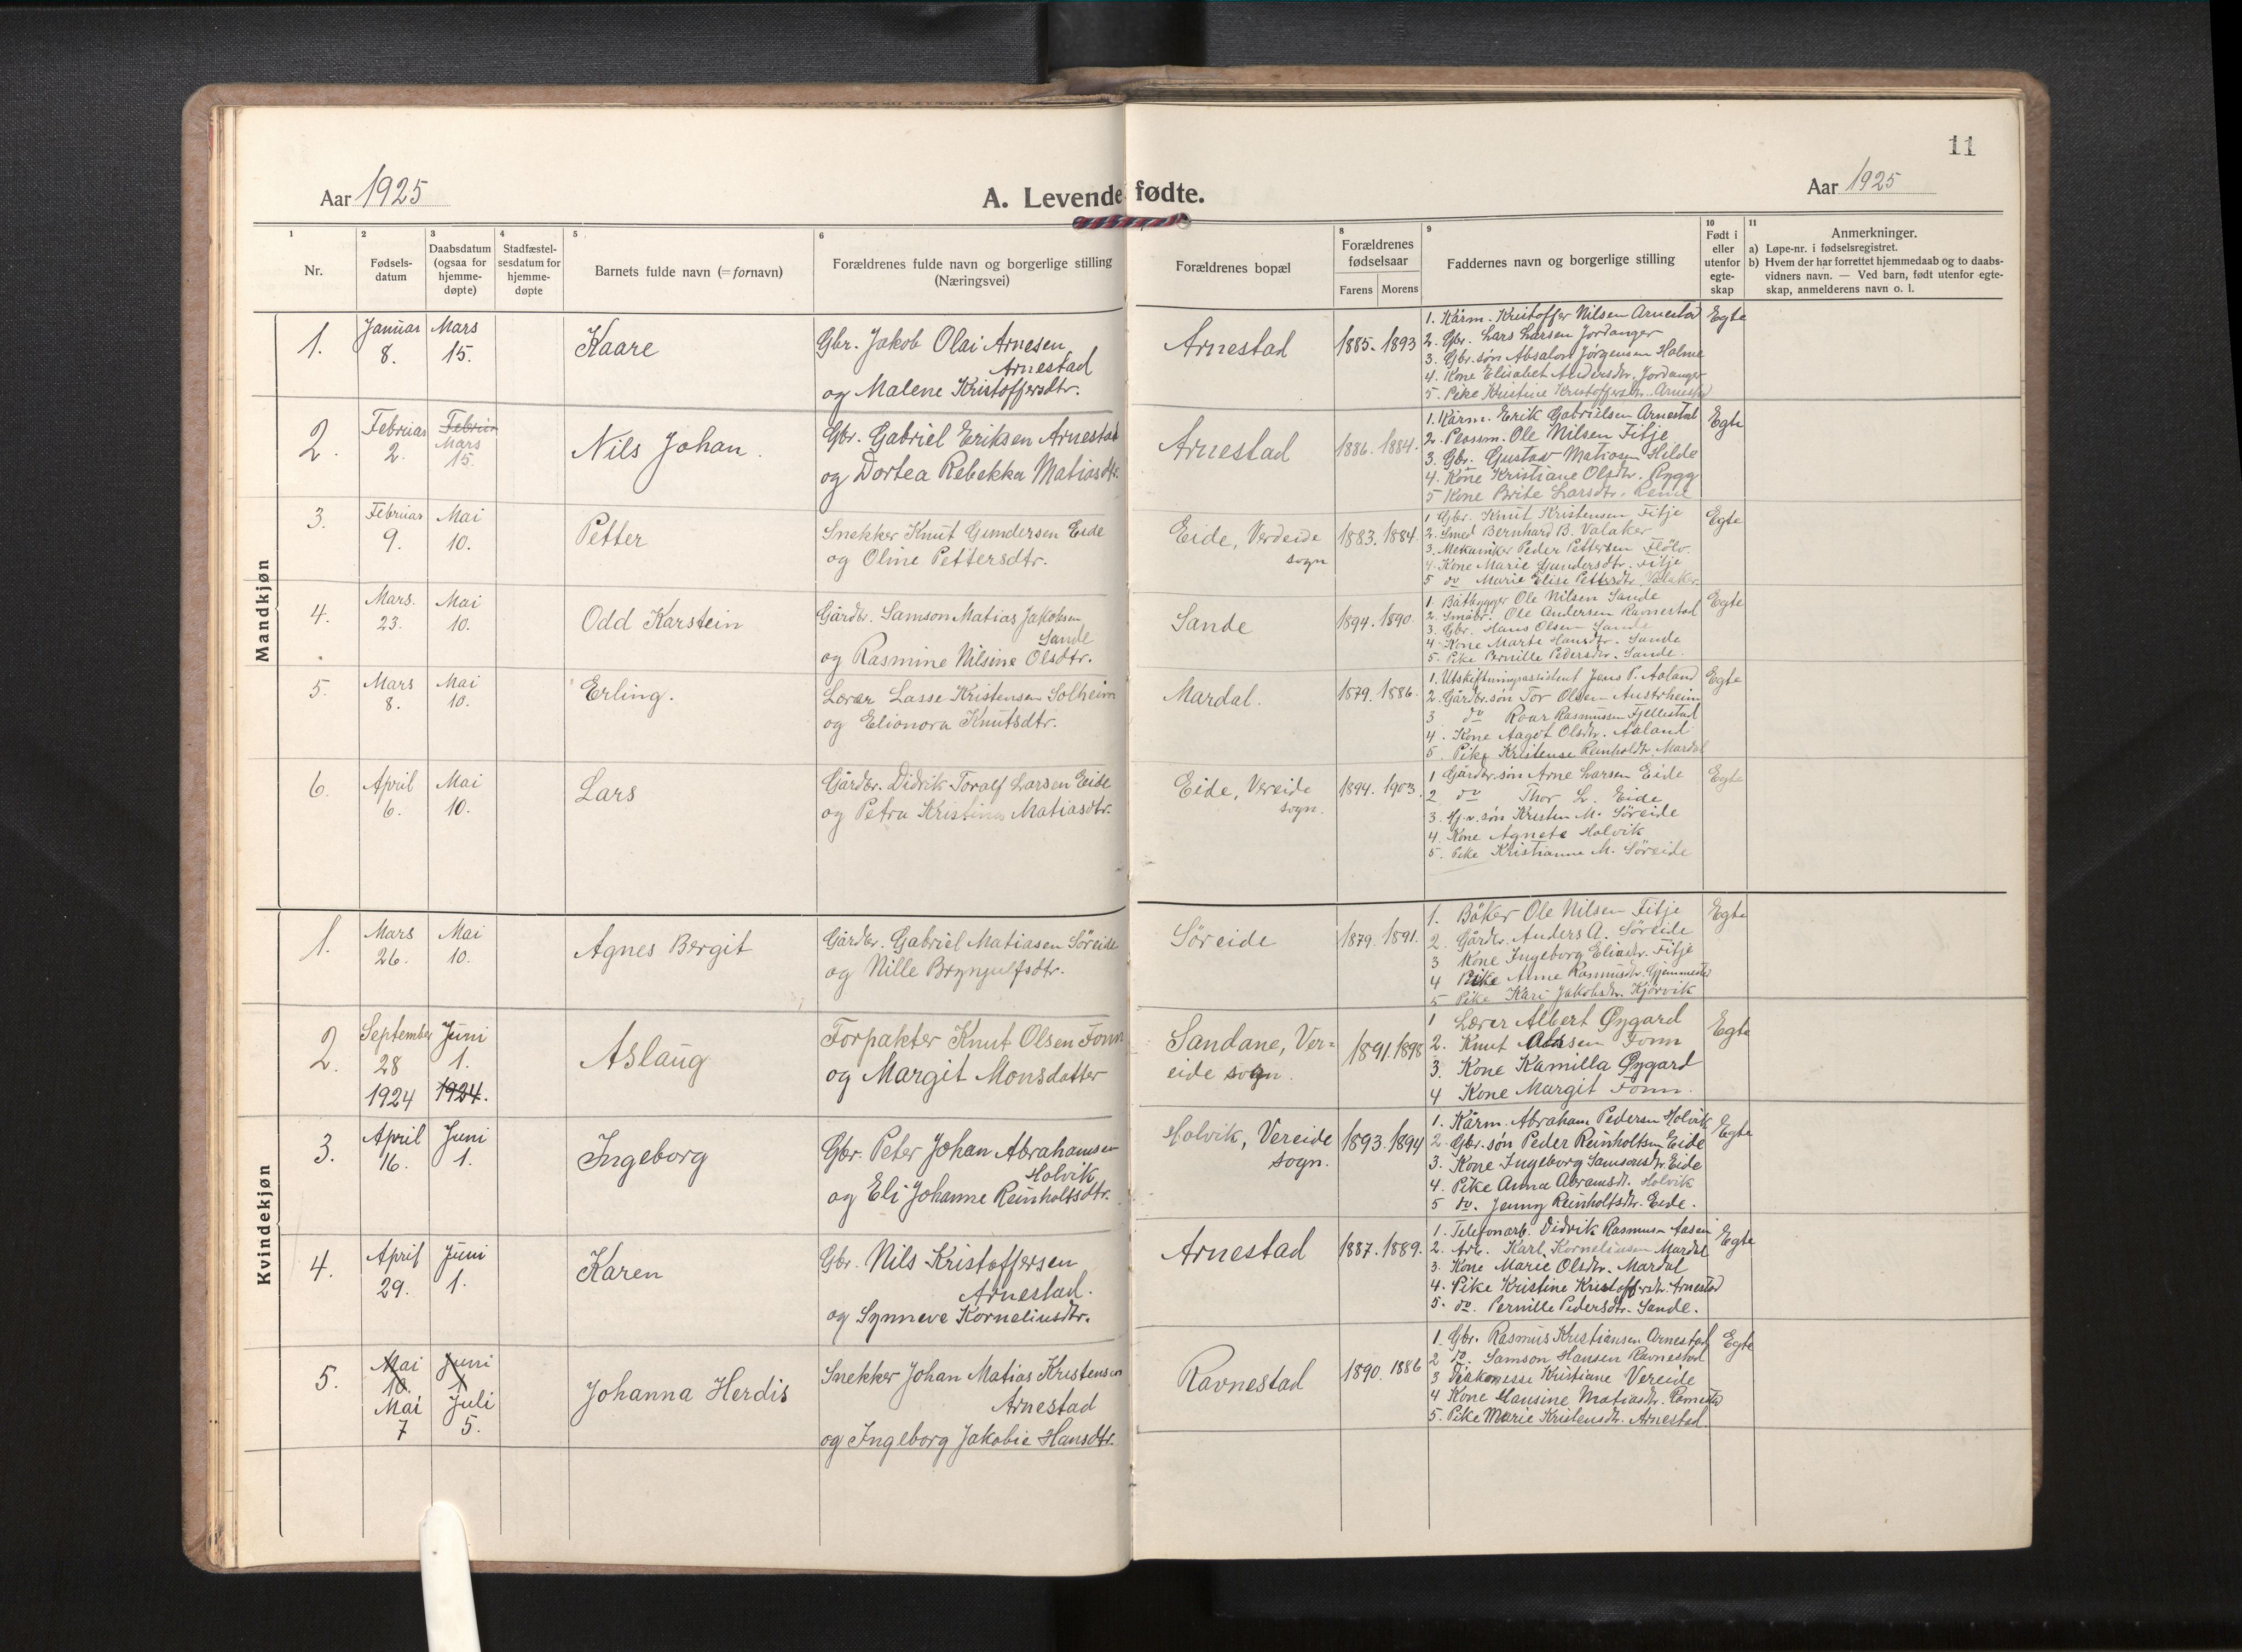 11
Aar 1925
A. Levende fødte.
Aar 1925
1
Nr.
2
Fødsels-
datum
3
Daabsdatum
(ogsaa for
hjemme-
døpte)
4
Stadfæstel-
sesdatum for
hjemme-
døpte
5
Barnets fulde navn (= fornavn)
6
Forældrenes fulde navn og borgerlige stilling
(Næringsvei)
Forældrenes bopæl
8
Forældrenes
fødselsaar
Farens Morens
9
Faddernes navn og borgerlige stilling
10
Født i
eller
utenfor
egte-
skap
11
Anmerkninger.
a) Løpe-nr. i fødselsregistret.
b) Hvem der har forrettet hjemmedaab og to daabs-
vidners navn. — Ved barn, født utenfor egte-
skap, anmelderens navn o. l.
Mandkjøn
1.
Januar
8.
Mars
15.
Kaare
Gbr. Jakob Olai Arnesen
Arnestad
og Malene Kristoffersdtr.
Arnestad
1885. 1893
1. Kårm. Kristoffer Nilsen Arnestad
2. Gbr. Lars Larsen Jordanger
3. Gbr. søn Absalon Jørgensen Holme
4. Kone Elisabet Andersdtr. Jordanger
5. Pike Kristine Kristoffersdtr. Arnestad
Egte
2.
Februar
2.
Februar
Mars
15.
Nils Johan.
Gbr. Gabriel Eriksen Arnestad
og Dortea Rebekka Matiasdtr.
Arnestad
1886. 1884.
1. Kårm. Erik Gabrielsen Arnestad
2. Plassm. Ole Nilsen Fitje
3. Gbr. Gustav Matiasen Hilde
4. Kone Kristiane Olsdtr. Rygg
5 Kone Brite Larsdtr. Reme
Egte
3.
Februar
9.
Mai
10.
Petter
Snekker Knut Gundersen Eide
og Oline Pettersdtr.
Eide, Verdeide
sogn
1883. 1884.
1 Gbr. Knut Kristensen Fitje
2. Smed Bernhard B. Valaker
3. Mekaniker Peder Pettersen Flölo.
4. Kone Marie Gundersdtr. Fitje
5 do Marie Elise Pettersdtr. Valaker.
Egte
4.
Mars.
23.
Mai
10.
Odd Karstein
Gårdbr. Samson Matias Jakobsen
Sande
og Rasmine Nilsine Olsdtr.
Sande
1894. 1890.
1. Båtbygger Ole Nilsen Sande
2. Småbr. Ole Andersen Ravnestad
3. Gbr. Hans Olsen Sande
4. Kone Marte Hansdtr. Sande
5. Pike Pernille Pedersdtr. Sande.
Egte
5.
Mars
8.
Mai
10.
Erling.
Lærer Lasse Kristensen Solheim
og Elionora Knutsdtr.
Mardal.
1879. 1886.
1. Utskiftningsassistent Jens P. Aaland
2. Gårdbr. søn Tor Olsen Austrheim
3 do Roar Rasmussen Fjellestad
4. Kone Aagot Olsdtr. Aaland
5. Pike Kristense Reinholdtr. Mardal
Egte
6.
April
6.
Mai
10.
Lars
Gårdbr. Didrik Toralf Larsen Eide
og Petra Kristine Matiasdtr.
Eide, Vereide
sogn.
1894. 1903.
1 Gårdbr. søn Arne Larsen Eide
2 do Thor L. Eide
3. Gj.v. søn Kristen M. Söreide
4. Kone Agnete Holvik
5. Pike Kristianne M. Söreide
Egte
Kvindekjøn
1.
Mars
26.
Mai
10.
Agnes Bergit
Gårdbr. Gabriel Matiasen Söreide
og Nille Brynjulfsdtr.
Söreide
1879. 1891.
1. Böker Ole Nilsen Fitje
2. Gårdbr. Anders A. Söreide
3 Kone Ingeborg Eliasdtr. Fitje
4 Pike Anne Rasmusdtr. Gjemmestad
5 Pike Kari Jakobsdtr. Kjörvik
Egte
2.
September
28
1924
Juni
1.
1924.
Aslaug
Forpakter Knut Olsen Fonn
og Margit Monsdatter
Sandane, Ver=
eide sogn.
1891. 1898
1 Lærer Albert Øygard
2. Knut Olsen Fonn
3. Kone Kamilla Øygard
4 Kone Margit Fonn.
Egte
3.
April
16.
Juni
1.
Ingeborg
Gbr. Peter Johan Abrahamsen
Holvik
og Eli Johanne Reinholtsdtr.
Holvik, Vereide
sogn.
1893. 1894
1. Kårm. Abraham Pedersen Holvik
2. Gbr. søn Peder Reinholtsen Eide
3. Kone Ingeborg Samsonsdtr. Eide
4. Pike Anna Abramsdt. Holvik
5 do. Jenny Reinholtsdtr. Eide.
Egte
4.
April
29.
Juni
1.
Karen
Gbr. Nils Kristoffersen
Arnestad.
og Synneve Korneliusdtr.
Arnestad
1887. 1889.
1. Telefonarb. Didrik Rasmusen Aasen
2. Arb. Karl Korneliusen Mardal
3. Kone Marie Olsdtr. Mardal
4. Pike Kristine Kristoffersdtr. Arnestad
5. do. Pernille Pedersdtr. Sande.
Egte
5.
Mai
10.
Mai
7
Juni
1
Juli
5.
Johanna Herdis
Snekker Johan Matias Kristensen
Arnestad
og Ingeborg Jakobie Hansdtr.
Ravnestad
1890. 1886
1. Gbr. Rasmus Kristiansen Arnestad
2 do. Samson Hansen Ravnestad
3 Diakonesse Kristiane Vereide
4 Kone Hansine Matiasdtr.
5. Pike Marie Kristensdtr. Arnestad
Egte